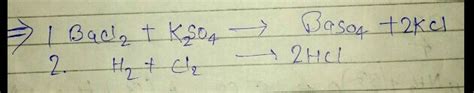 ⇒ 1 BaCl₂ + K₂SO₄ → BaSO₄ + 2KCl
2. H₂ + Cl₂ → 2HCl